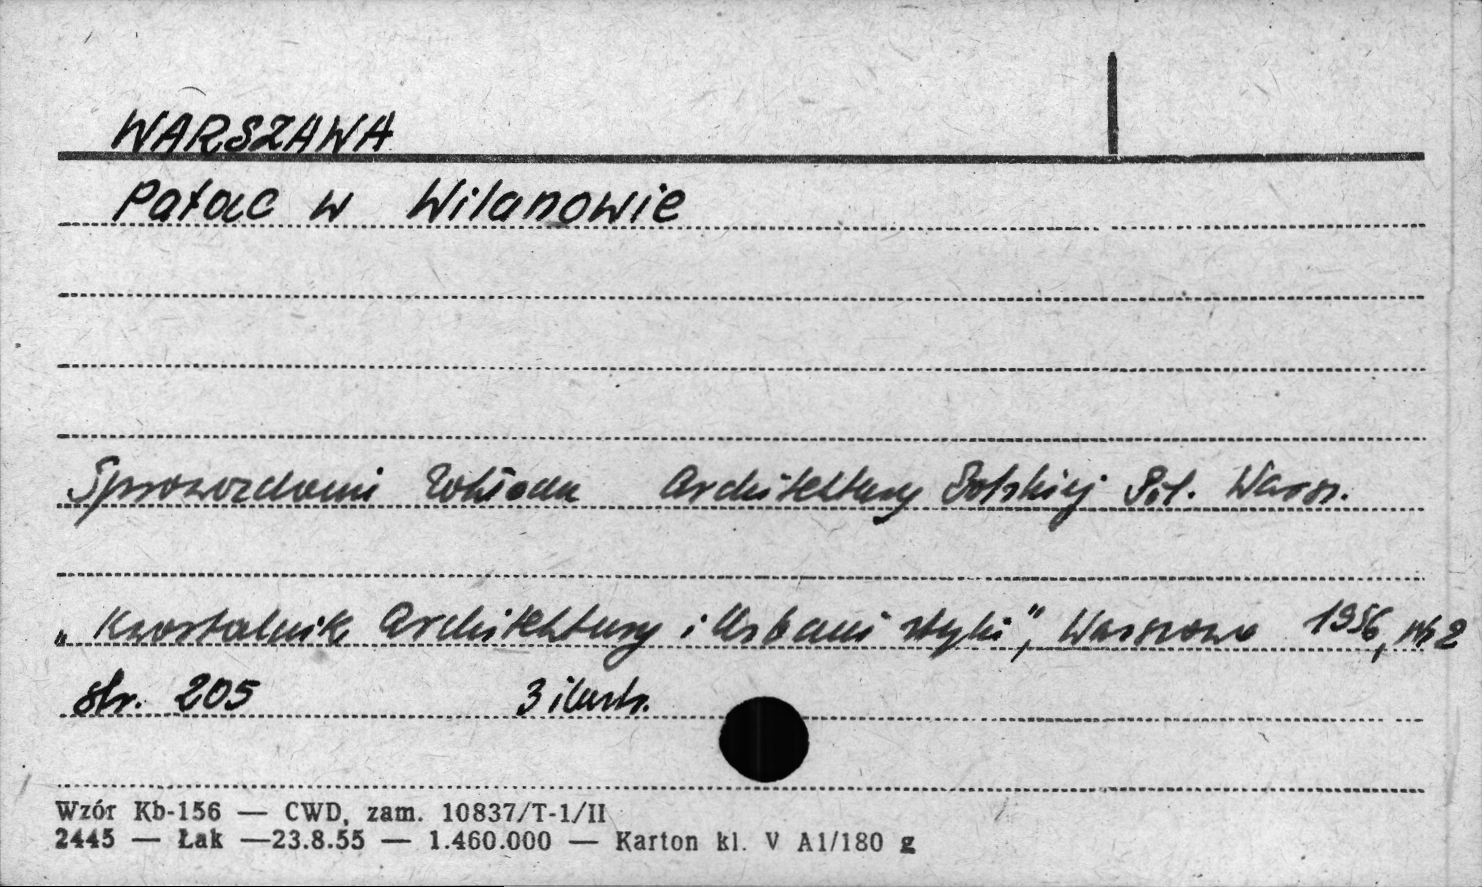 WARSZAWA
Pałac w Wilanowie
Sprawozdanie Zakładu Architektury Polskiej Pol. Warsz.
„Kwartalnik Architektury i Urbanistyki", Warszawa 1956, nr 2
str. 205 3 ilustr.
Wzór Kb-156 — CWD, zam. 10837/T-1/II
2445 — Łak —23.8.55 — 1.460.000 — Karton kl. V A1/180 g